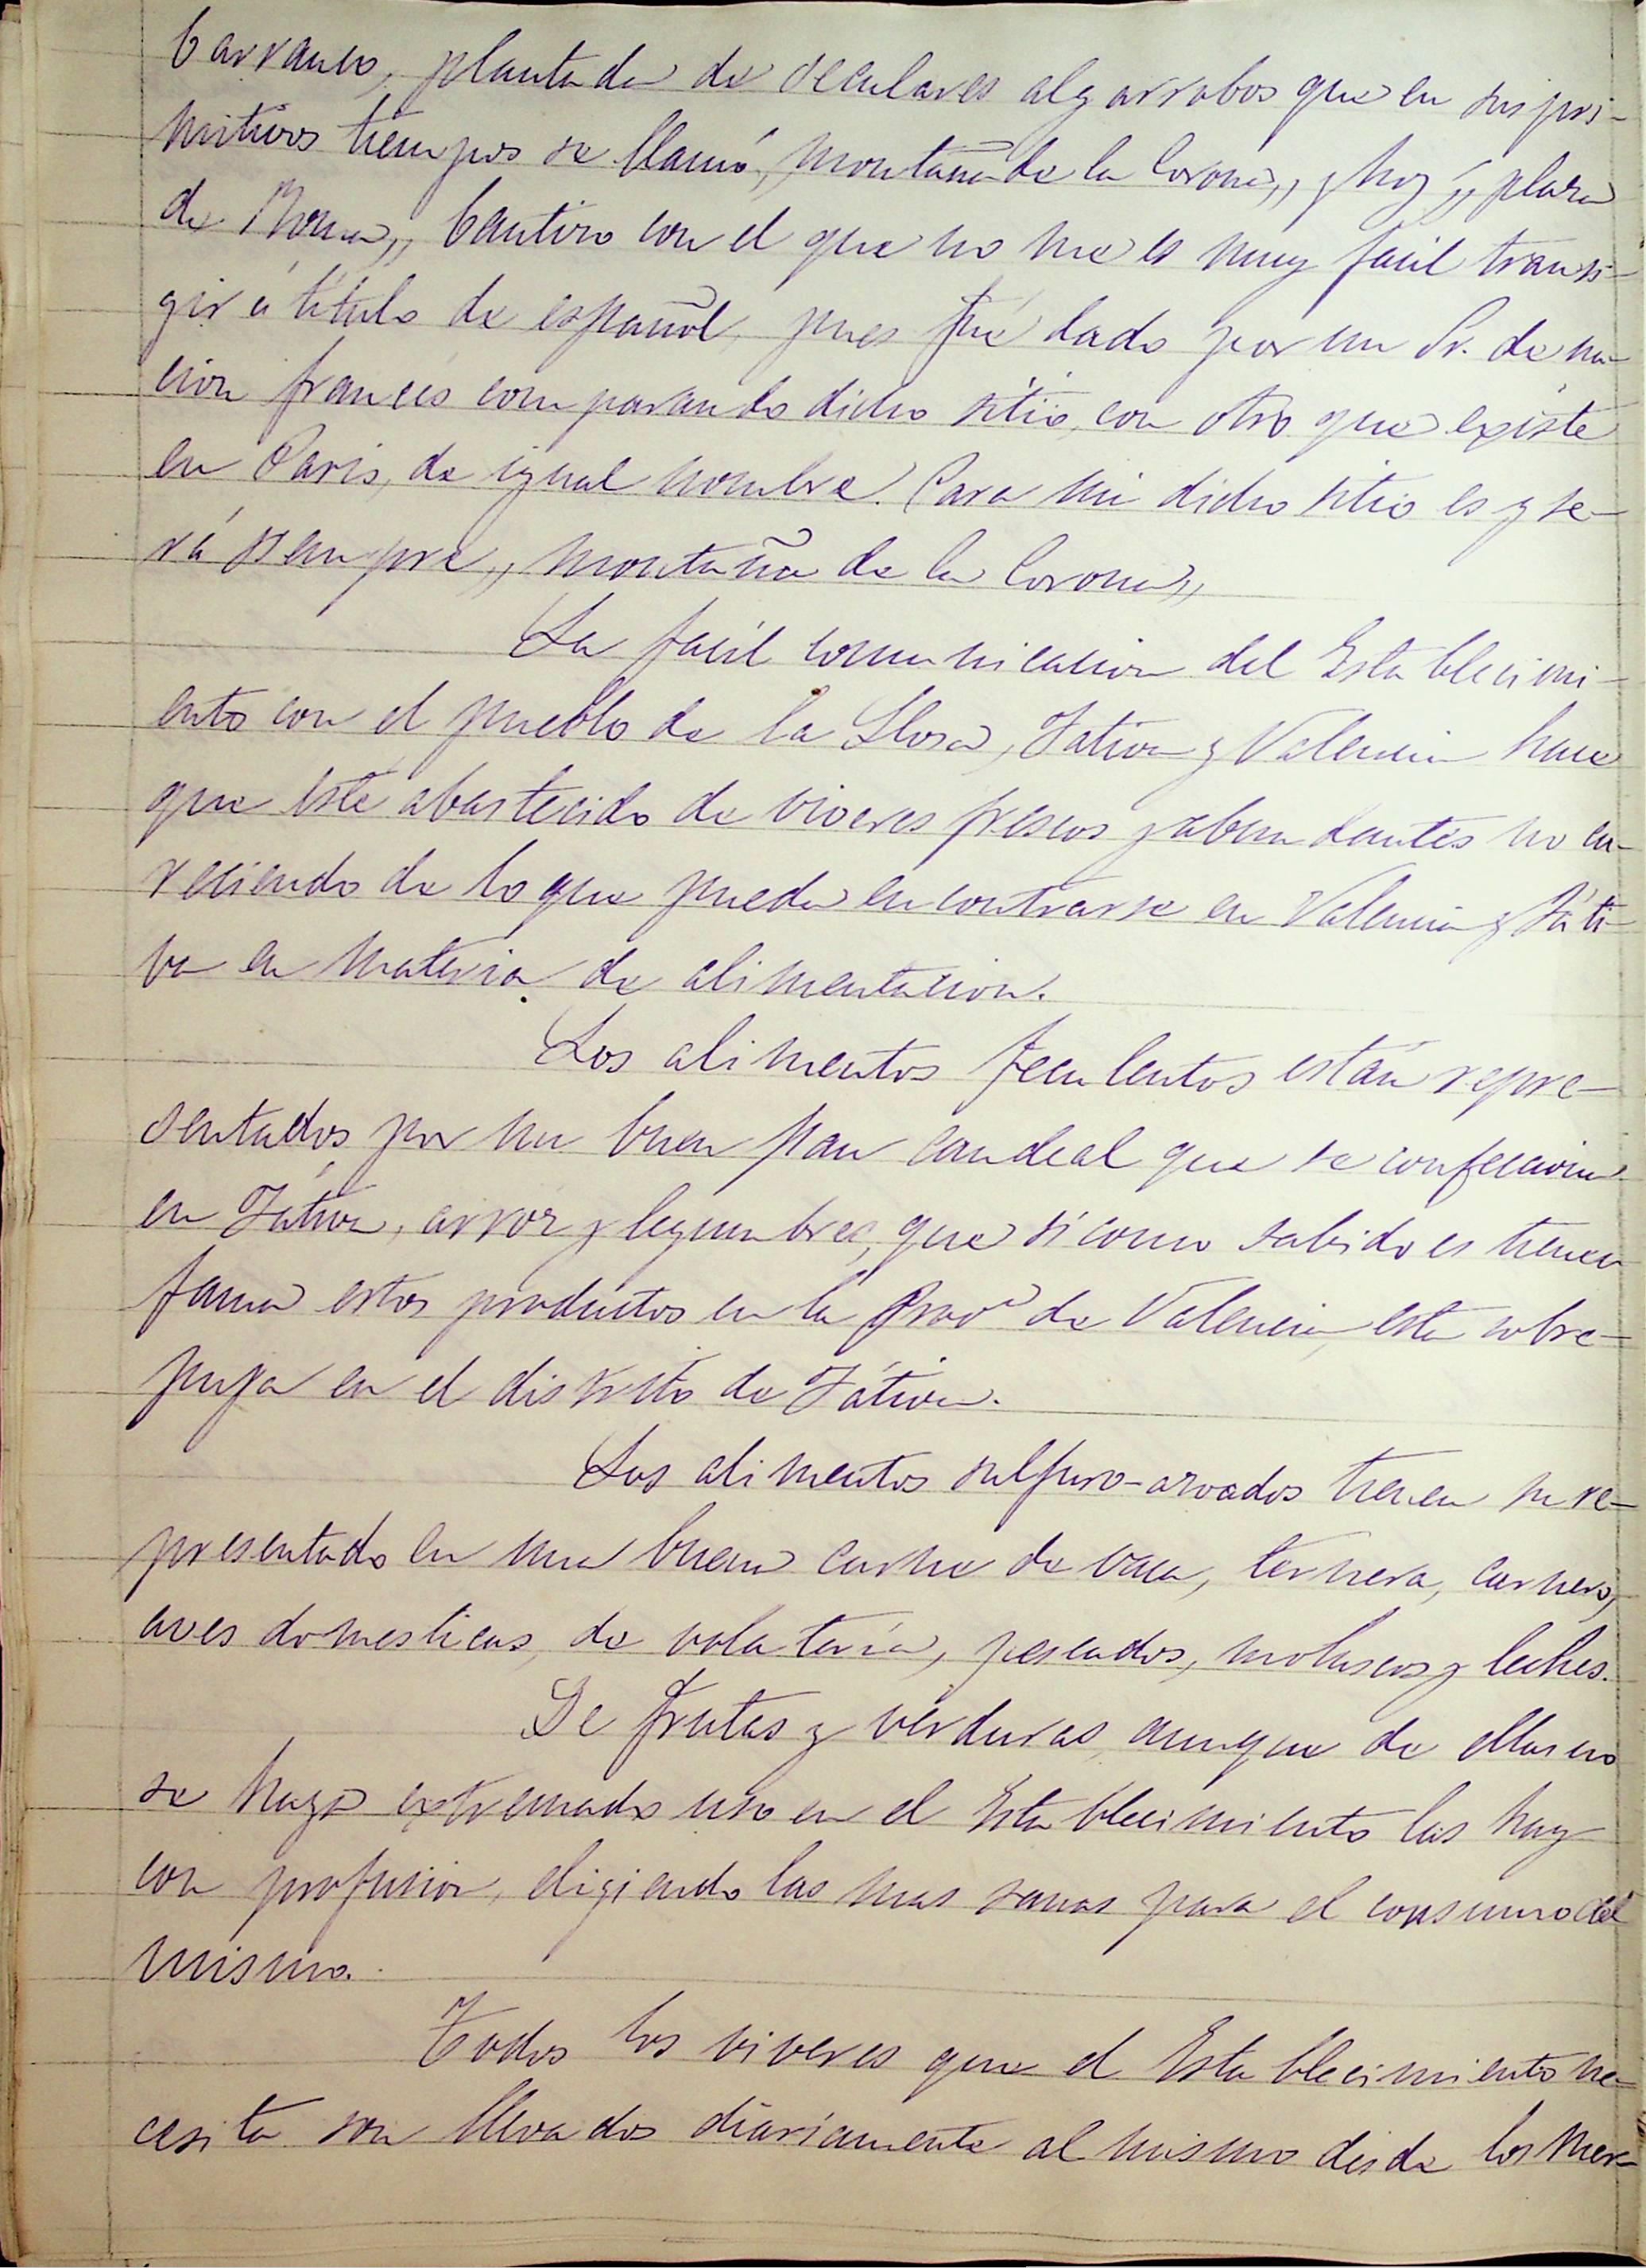 barranco, plantada de seculares algarrobos que en sus pri-
mitivos tiempos se llamó, montaña de la Corona,, y hoy ,, plaza
de Roma,, bautizo con el que no me es muy facil transi-
gir á título de español, pues fué dado por un Sr. de na-
cion francés comparando dicho sitio, con otro que existe
en Paris, de igual nombre. Para mi dicho sitio es y se-
rá siempre,, montaña de la Corona,,
La facil comunicacion del Establecimi-
ento con el pueblo de la Llosa, Játiva y Valencia hace
que esté abastecido de viveres frescos y abundantes no ca-
reciendo de lo que pueda encontrarse en Valencia y Játi-
va en materia de alimentacion.
Los alimentos feculentos están repre-
sentados por un buen pan candeal que se confecciona
en Játiva, arroz y legumbres, que si como sabido es tienen
fama estos productos en la Prova de Valencia, esta sobre-
puja en el distrito de Játiva.
Los alimentos sulfuro-azoados tienen su re-
presentado en una buena carne de vaca, ternera, carnero,
aves domesticas, de volatería, pescados, moluscos y leches.
De frutas y verduras, aunque de ellas no
se haga extremado uso en el Establecimiento las hay
con profusion, eligiendo las mas sanas para el consumo del
mismo.
Todos los viveres que el Establecimiento ne-
cesita son llevados diariamente al mismo desde los Mer-